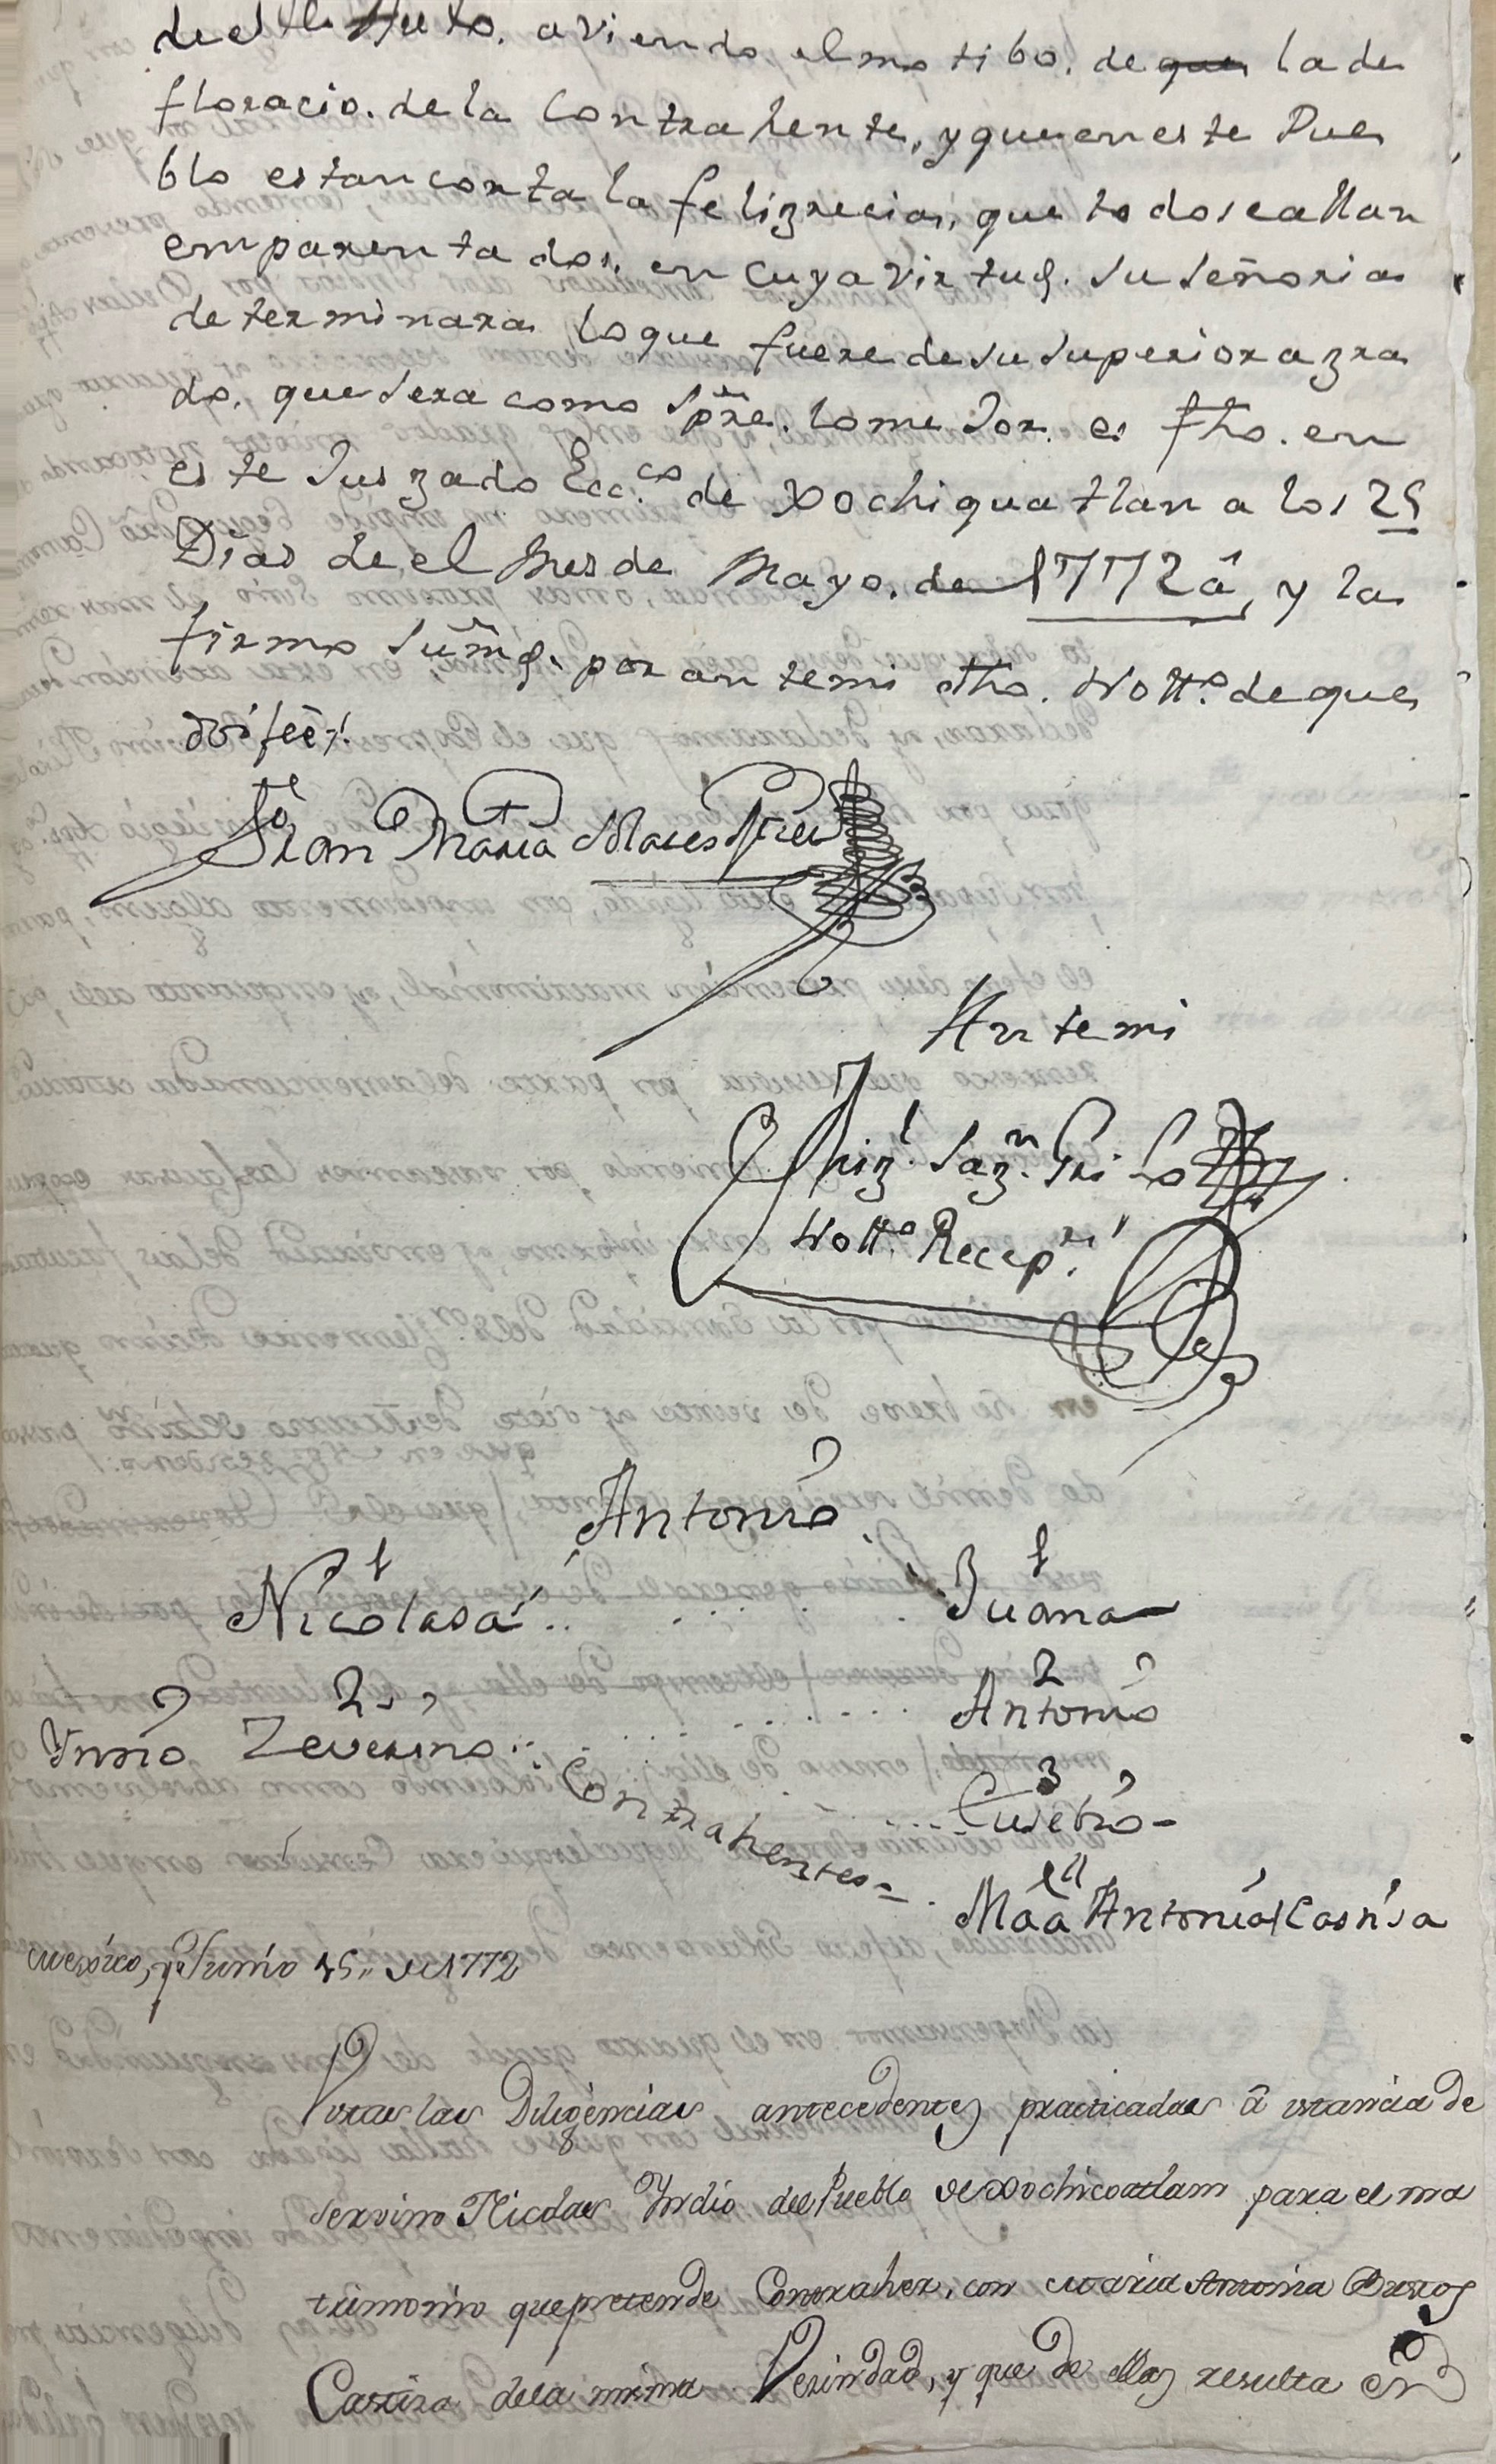 de el Auto. aviendo el motibo. de que la de
floracio. de la Contrahente, y que en este Pue
blo estan corta la feligrecia, que todos se allan
emparentados, en cuya virtud. su señoria
determinara lo que fuere de su superior agra
do. que sera como spre. lo mejor. es fho. en
este Jusgado Ecc.co de Xochiquatlan a los 25
Dias de el Mes de Mayo. de 1772 a, y la
firmo su md. por ante mi dho. Nott.o de que
doi feé
Juan Maria
Ante mi
Nott.o Recep.r
Antonio
1 1
Nicolasa Juana
2 2
Yndio Zeverino Antonio
3
Eusebio
Contrahentes
4
Ma Antonia Castisa
Mexico, y Junio 15 de 1772
Vistas las Diligencias antecedentes practicadas â istancia de
Servino Nicolas Yndio del Pueblo de Xochicoatlam para el ma
trimonio que pretende Contraher, con Maria Antonia Bustos
Castiza de la misma Vezindad, y que de ellas resulta